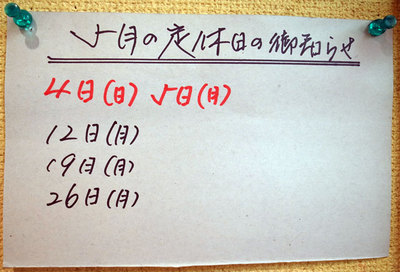 5月の定休日の御知らせ
4日(日) 5日(月)
12日(月)
19日(月)
26日(月)